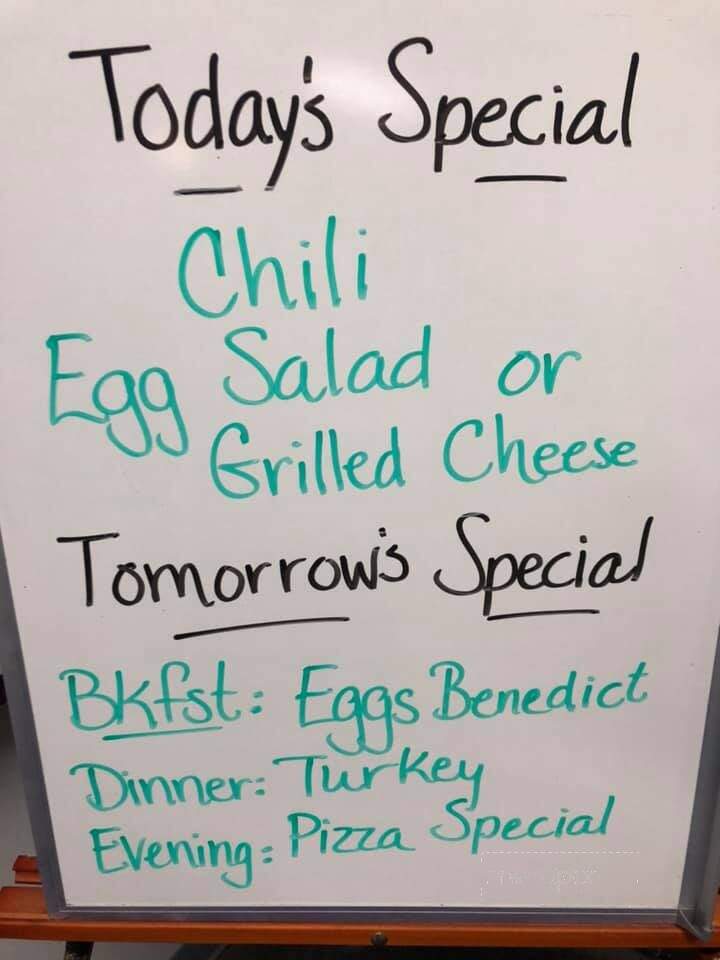 Today's Special
Chili
Egg Salad or
Grilled Cheese
Tomorrow's Special
Bkfst: Eggs Benedict
Dinner: Turkey
Evening: Pizza Special